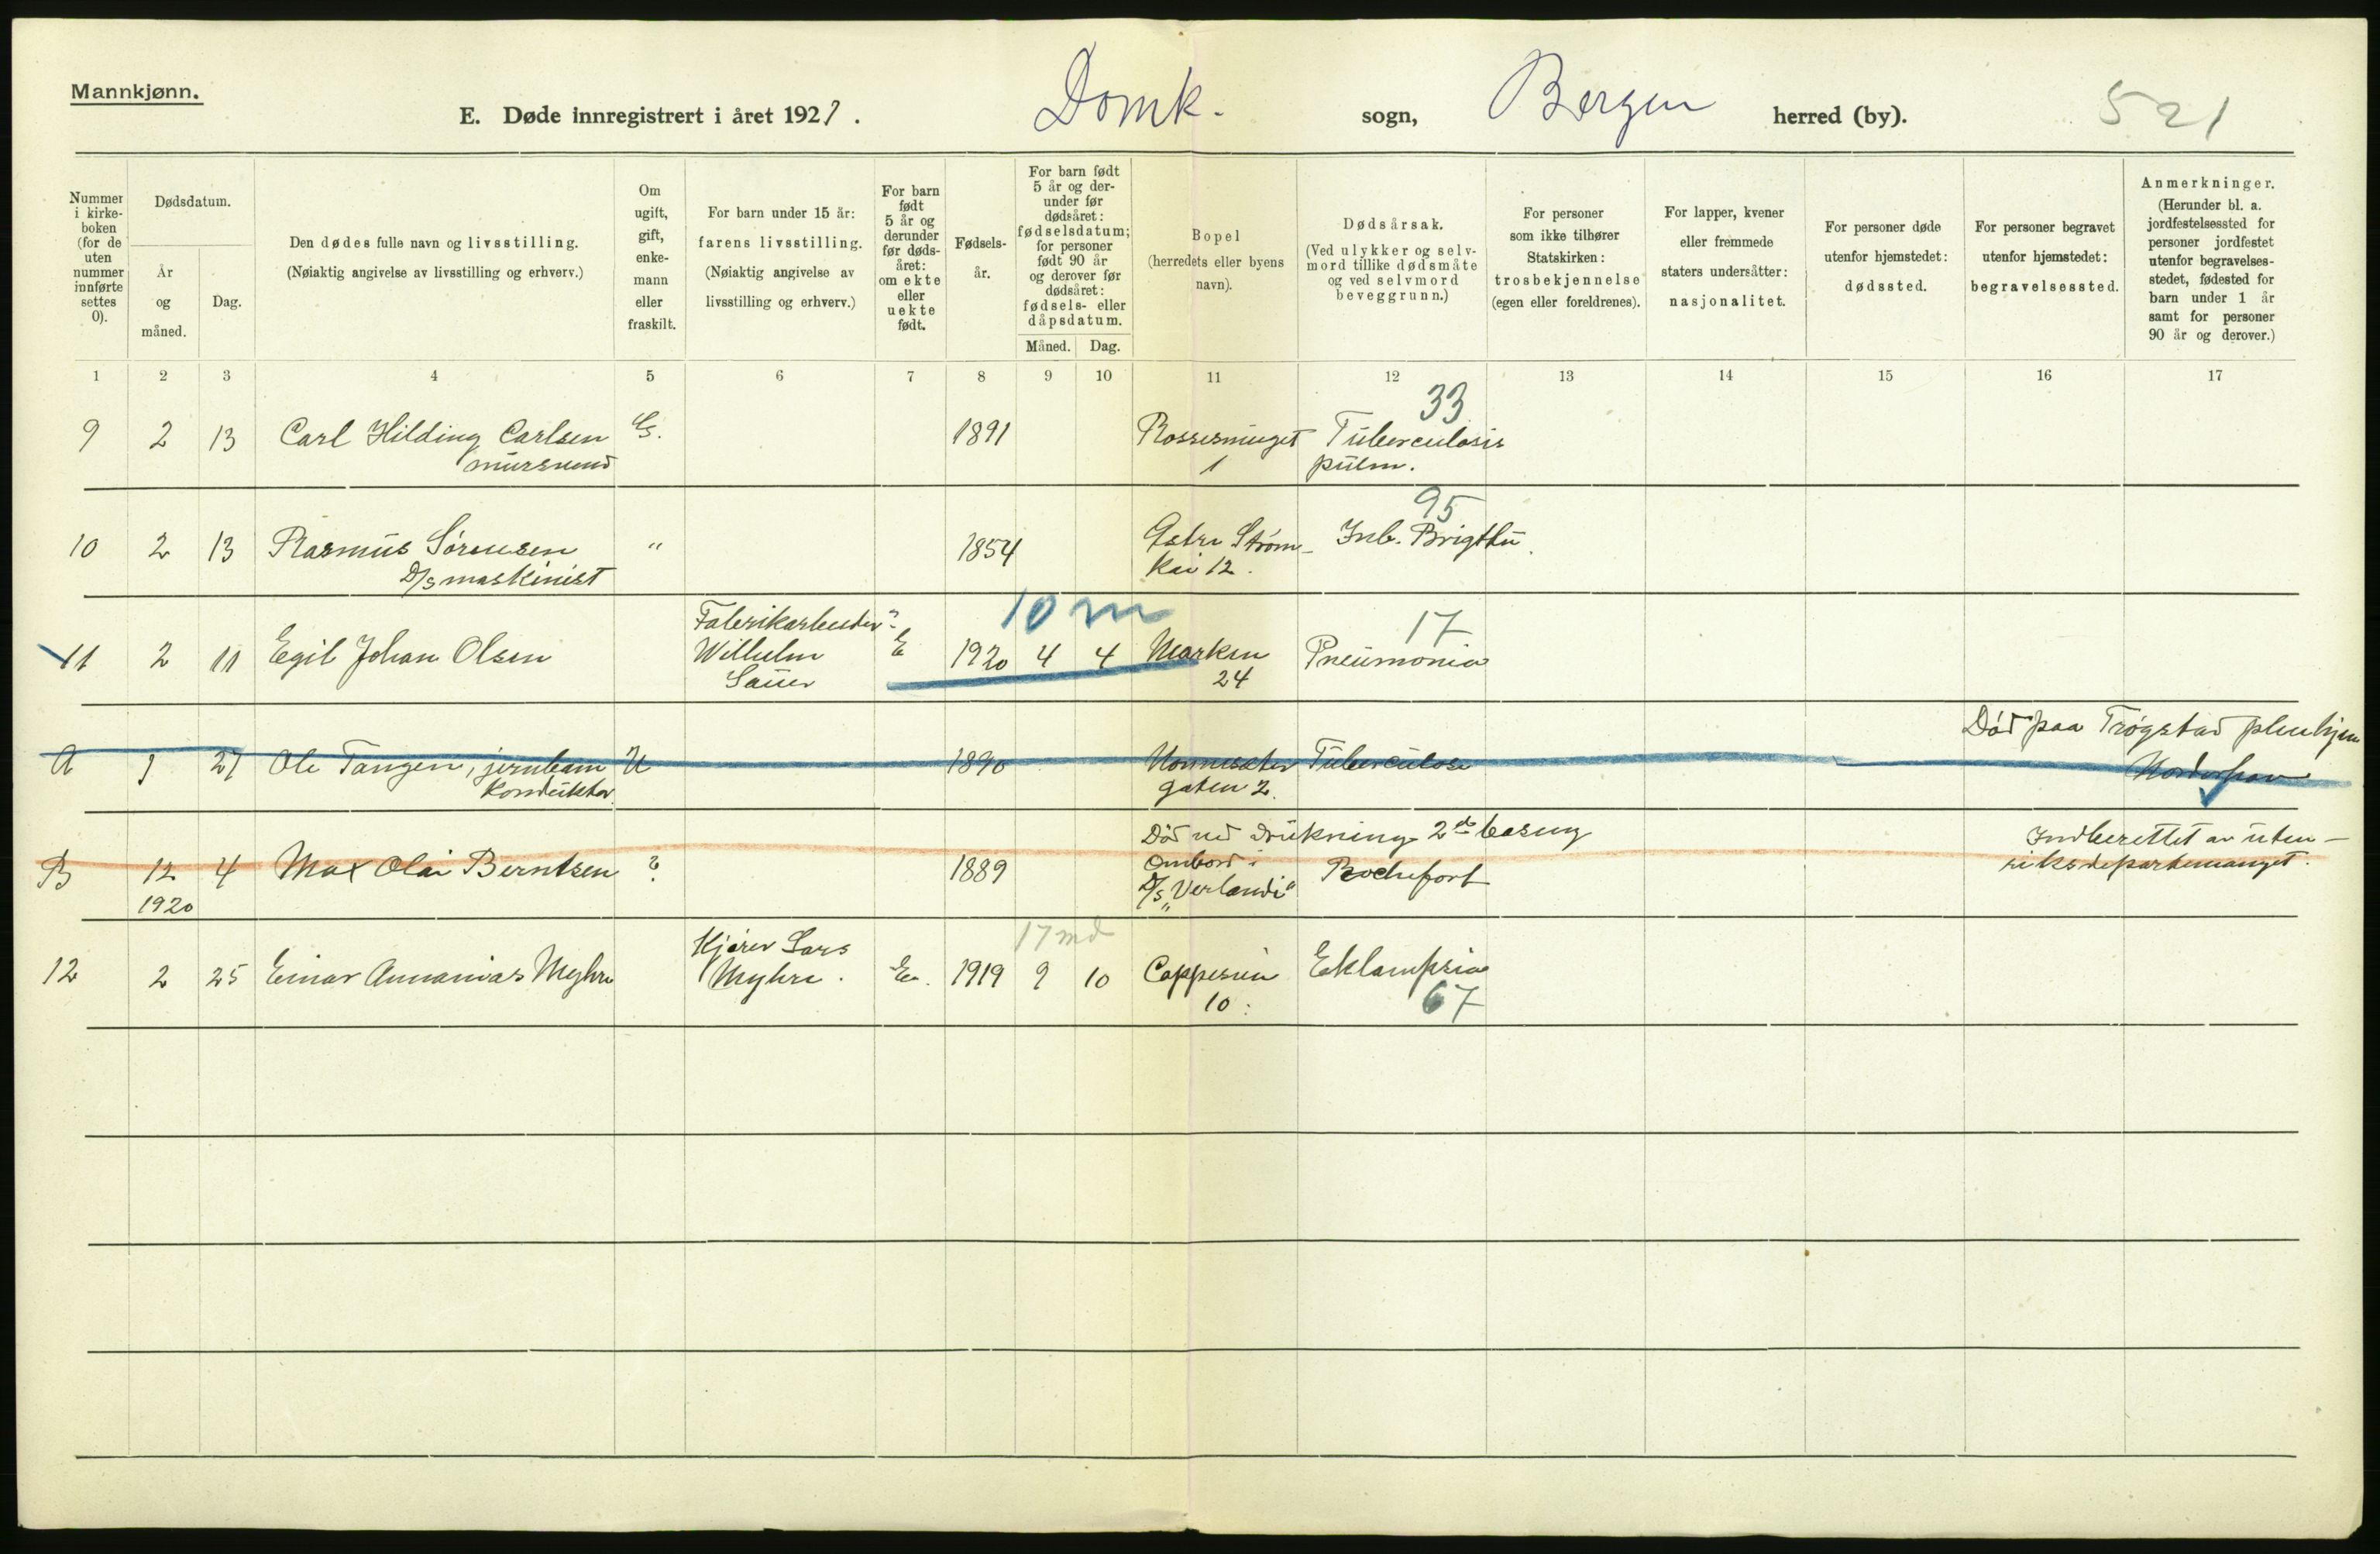 Mannkjønn.
E. Døde innregistrert i året 1921.
Domk. sogn, Bergen herred (by).
521
Nummer i kirke-
boken
(for de
uten
nummer
innførte
settes
0).
Dødsdatum.
År
og
måned.
Dag.
Den dødes fulle navn og livsstilling.
(Nøiaktig angivelse av livsstilling og erhverv.)
Om
ugift,
gift,
enke-
mann
eller
fraskilt.
For barn under 15 år:
farens livsstilling.
(Nøiaktig angivelse av
livsstilling og erhverv.)
For barn
født
5 år og
derunder
før døds-
året:
om ekte
eller
uekte
født.
Fødsels-
år.
For barn født
5 år og der-
under før
dødsåret:
fødselsdatum;
for personer
født 90 år
og derover før
dødsåret:
fødsels- eller
dåpsdatum.
Måned. Dag.
Bopel
(herredets eller byens
navn).
Dødsårsak.
(Ved ulykker og selv-
mord tillike dødsmåte
og ved selvmord
beveggrunn.)
For personer
som ikke tilhører
Statskirken:
trosbekjennelse
(egen eller foreldrenes).
For lapper, kvener
eller fremmede
staters undersåtter:
nasjonalitet.
For personer døde
utenfor hjemstedet:
dødssted.
For personer begravet
utenfor hjemstedet:
begravelsessted.
Anmerkninger.
(Herunder bl. a.
jordfestelsessted for
personer jordfestet
utenfor begravelses-
stedet, fødested for
barn under 1 år
samt for personer
90 år og derover.)
1 2 3 4 5 6 7 8 9 10 11 12 13 14 15 16 17
33
9 2 13 Carl Hilding Carlsen G. 1891 Rossesmuget Tuberculosis
mursvend 1 pulm.
95
10 2 13 Rasmus Sørensen " 1854 Østre Strøm- Brigthii
D/s maskinist kai 12.
Fabrikarbeider ? 10 m 17
11 2 11 Egil Johan Olsen Wilhelm E 1920 4 4 Marken Pneumonia
Sauer 24
Død paa Trøgstad pleiehjem
A 1 27 Ole Tangen, jernbane U 1890 Tuberculose
konduktør gaten 2.
Død ved drukning 2den
Indberettet av uten-
B 12 4 Max Olai Berntsen ? 1889 ombord i Rochefort riksdepartemanget.
1920 D/s "Verlandi"
Kjører Lars 17 md
12 2 25 Einar Annanias Myhre Myhre. E. 1919 9 10 Cappesvei Eklampsia
10. 67